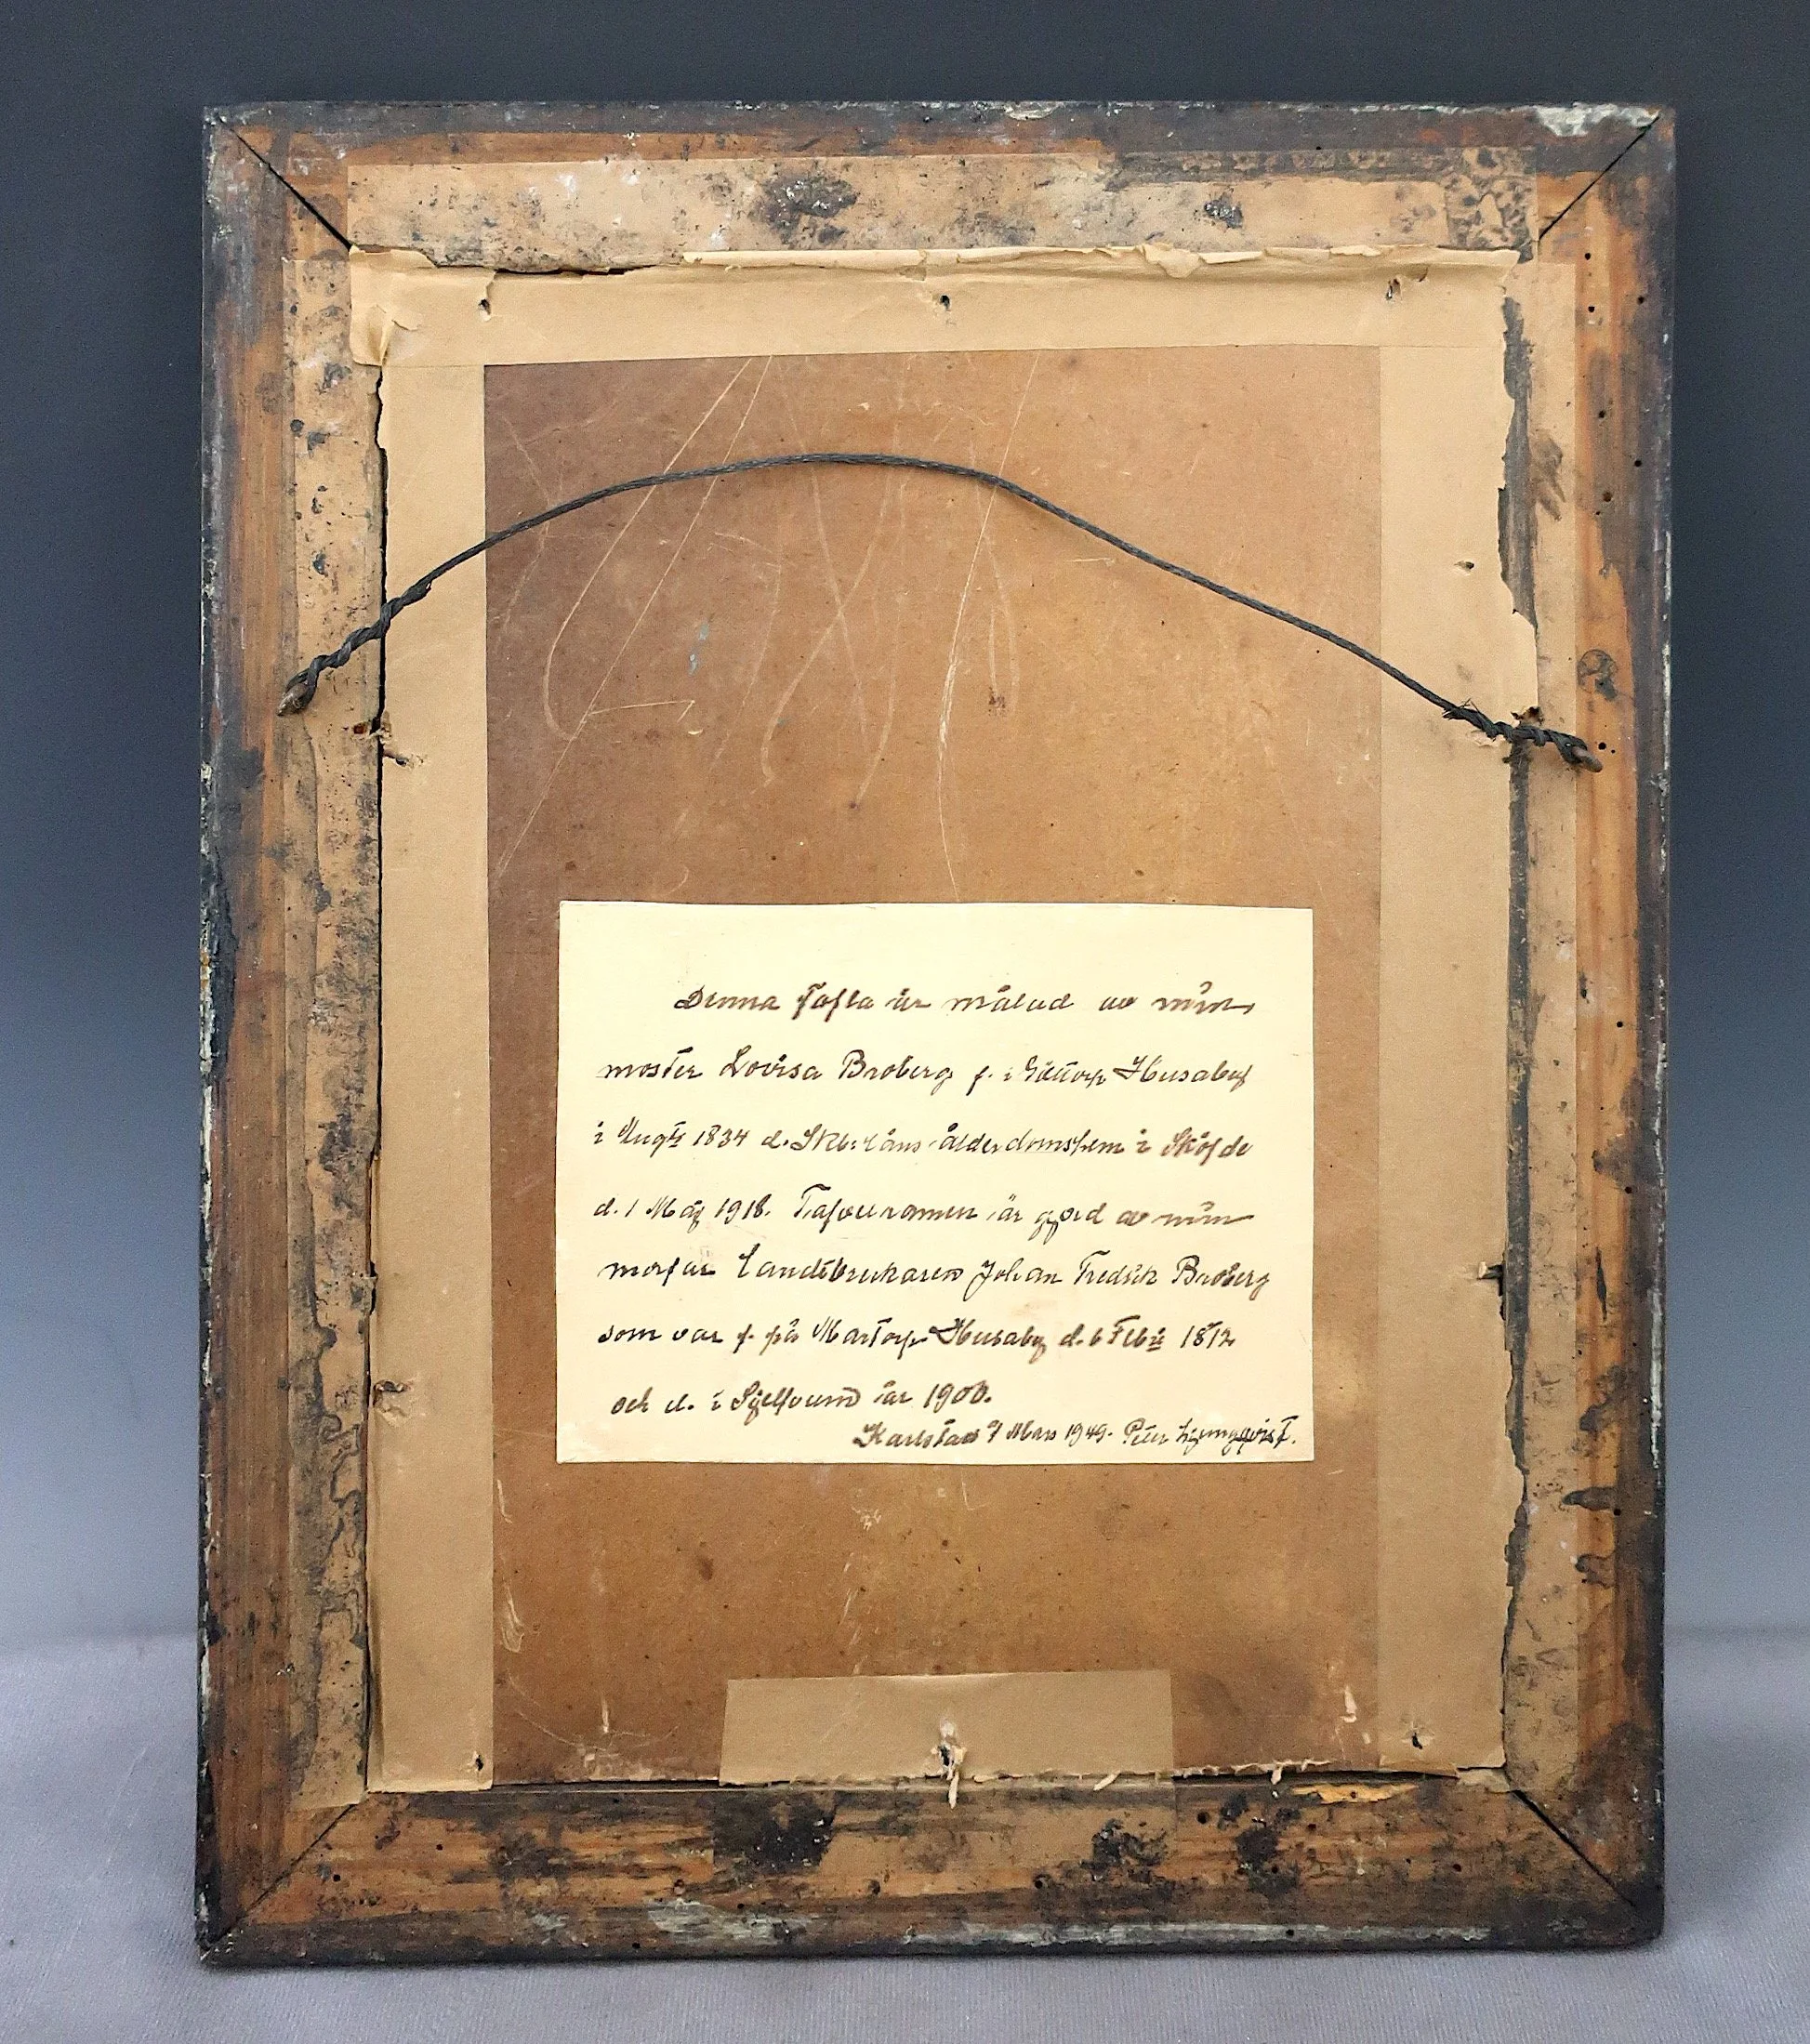 Denna Tafla är målad av min
moster Lovisa Broberg f. i Husaby
i Augti 1834 d. Skb: läns ålderdomshem i Sköfde
d. 1 Maj 1918. Tafvelramen är gjord av min
morfar Landtbrukaren Johan Fredrik Broberg
som var f. på Martorp Husaby d. 6 Feb 1812
och d. i år 1900.
Karlstad Mars 1949. Peter Ljungqvist.